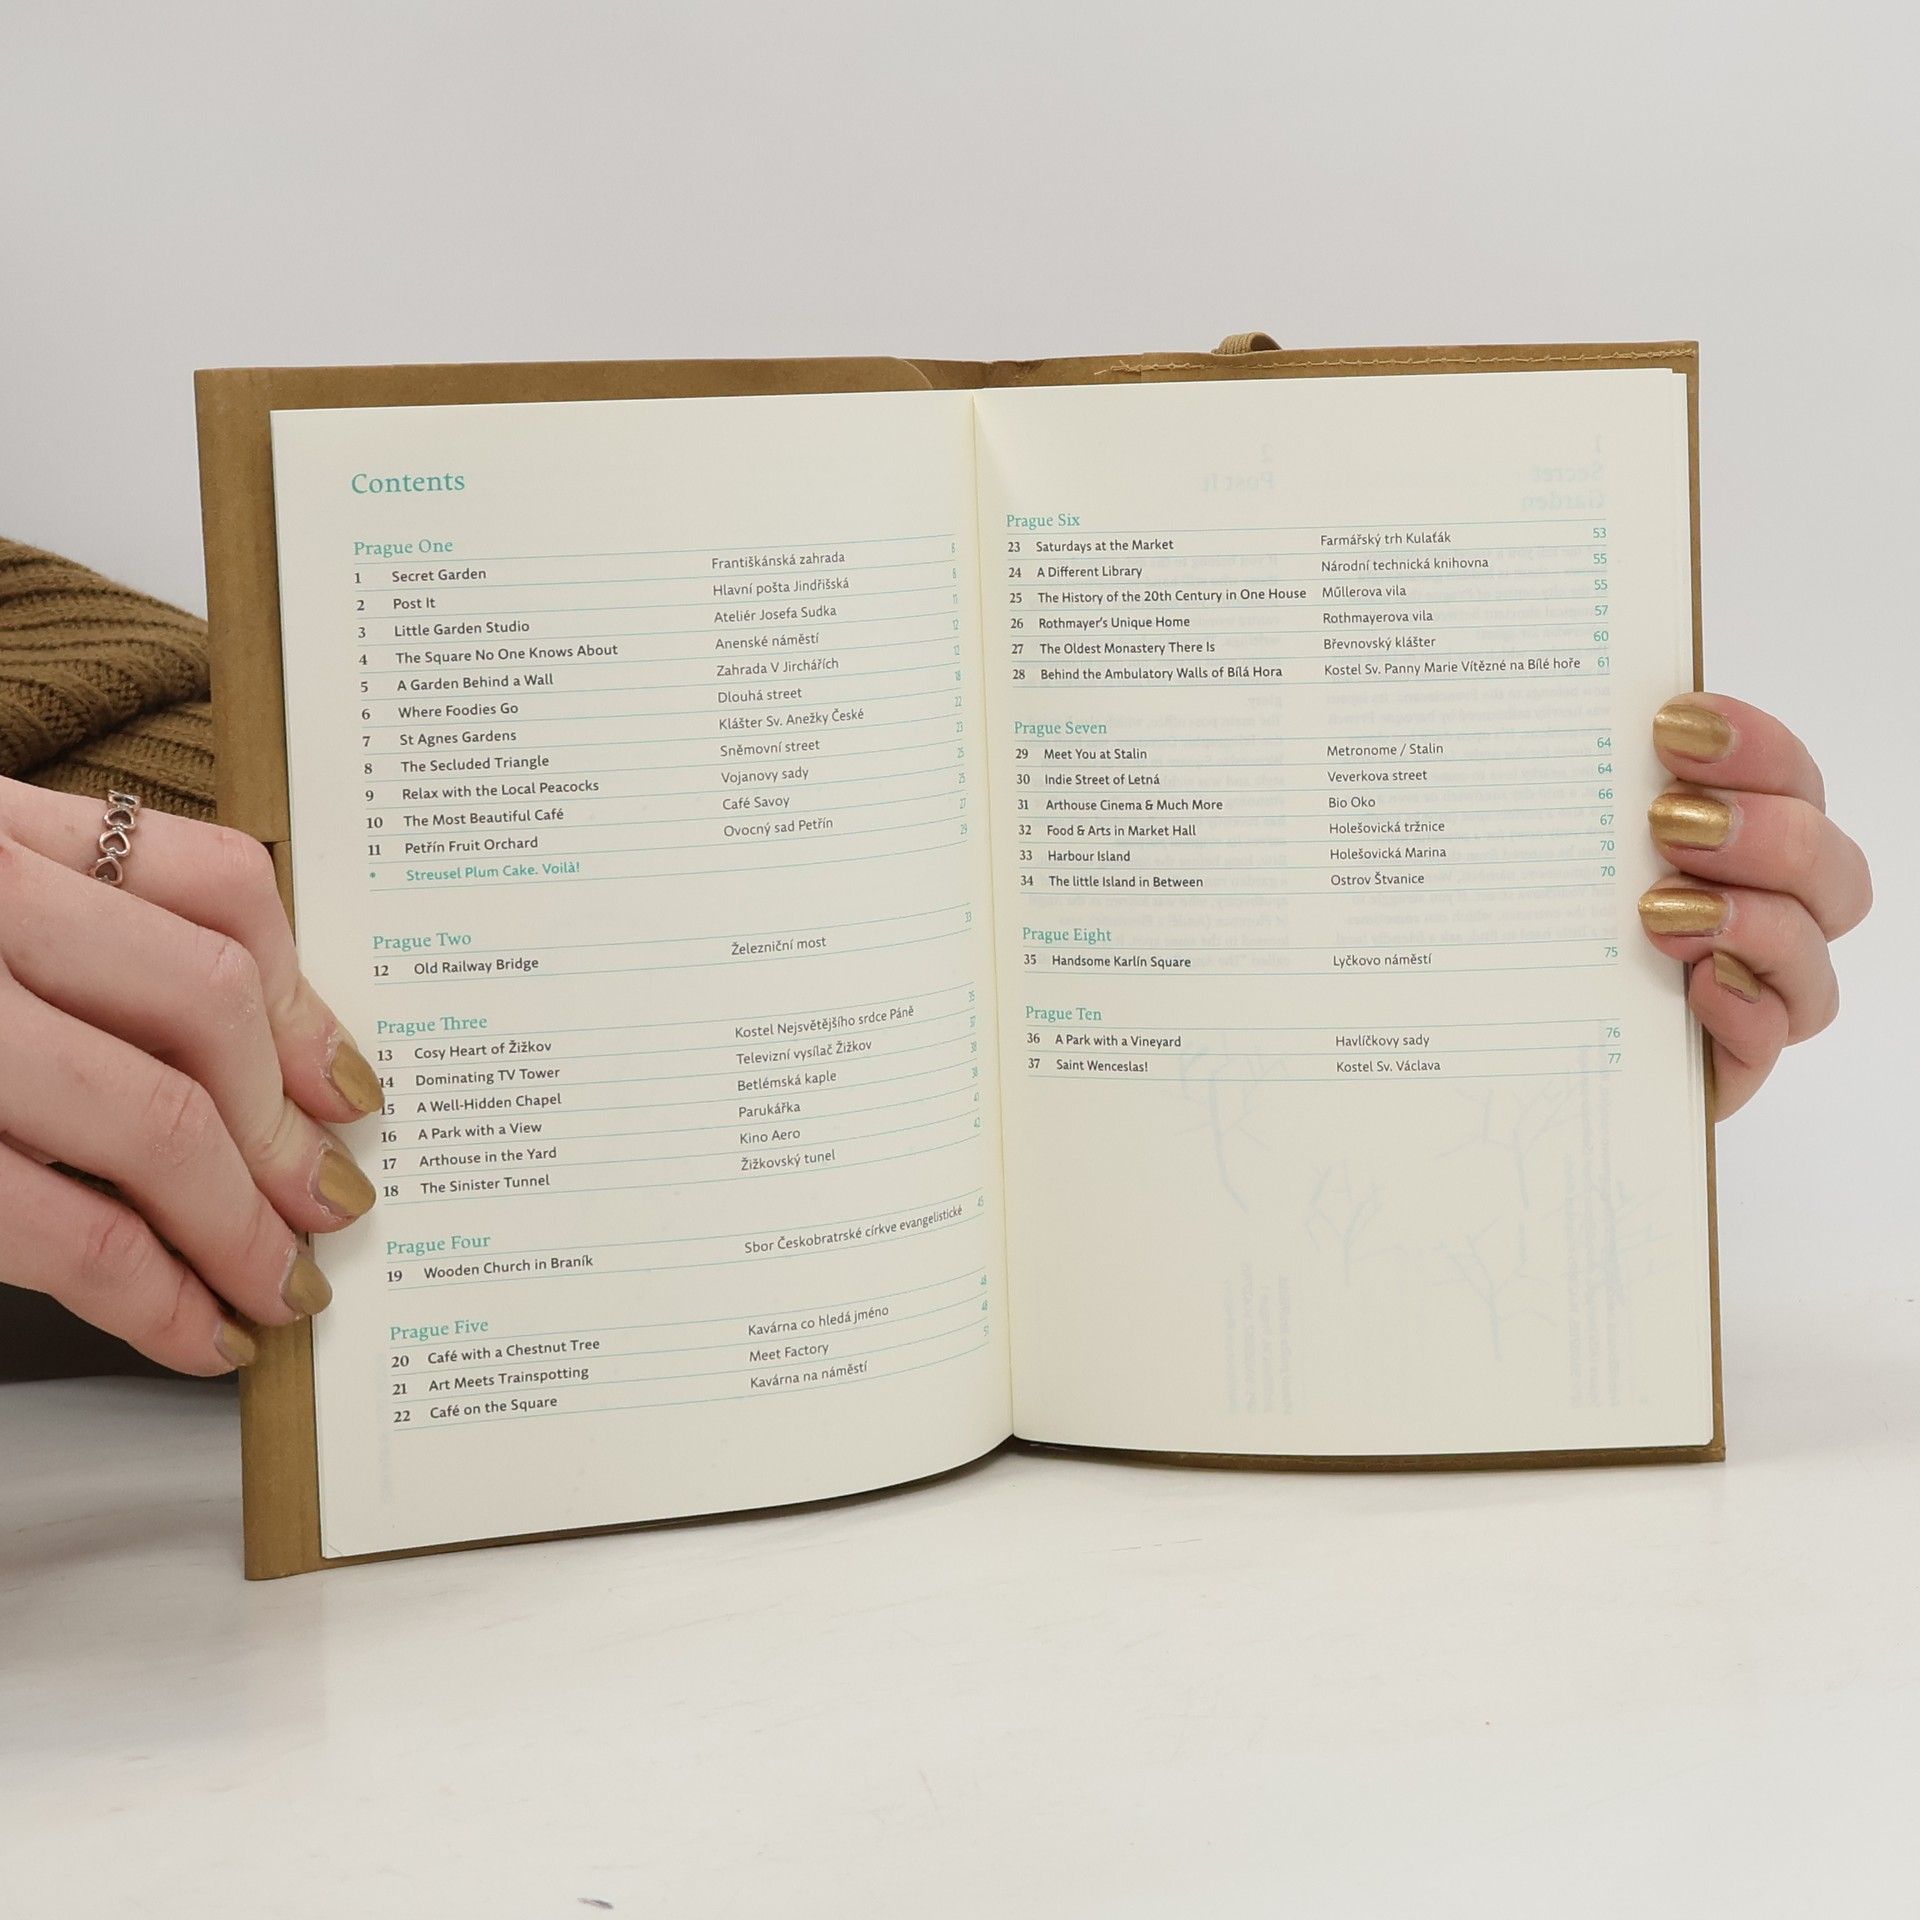 Contents
Prague One
1 Secret Garden Františkánská zahrada 6
2 Post It Hlavní pošta Jindřišská 8
3 Little Garden Studio Ateliér Josefa Sudka 11
4 The Square No One Knows About Anenské náměstí 12
5 A Garden Behind a Wall Zahrada V Jirchářích 12
6 Where Foodies Go Dlouhá street 18
7 St Agnes Gardens Klášter Sv. Anežky České 22
8 The Secluded Triangle Sněmovní street 23
9 Relax with the Local Peacocks Vojanovy sady 25
10 The Most Beautiful Café Café Savoy 25
11 Petřín Fruit Orchard Ovocný sad Petřín 27
* Streusel Plum Cake. Voilà! 29
Prague Two
12 Old Railway Bridge Železniční most 33
Prague Three
13 Cosy Heart of Žižkov Kostel Nejsvětějšího srdce Páně 35
14 Dominating TV Tower Televizní vysílač Žižkov 37
15 A Well-Hidden Chapel Betlémská kaple 38
16 A Park with a View Parukářka 38
17 Arthouse in the Yard Kino Aero 41
18 The Sinister Tunnel Žižkovský tunel 42
Prague Four
19 Wooden Church in Braník Sbor Českobratrské církve evangelistické 45
Prague Five
20 Café with a Chestnut Tree Kavárna co hledá jméno 48
21 Art Meets Trainspotting Meet Factory 48
22 Café on the Square Kavárna na náměstí 51
Prague Six
23 Saturdays at the Market Farmářský trh Kulaťák 53
24 A Different Library Národní technická knihovna 55
25 The History of the 20th Century in One House Műllerova vila 55
26 Rothmayer's Unique Home Rothmayerova vila 57
27 The Oldest Monastery There Is Břevnovský klášter 60
28 Behind the Ambulatory Walls of Bílá Hora Kostel Sv. Panny Marie Vítězné na Bílé hoře 61
Prague Seven
29 Meet You at Stalin Metronome / Stalin 64
30 Indie Street of Letná Veverkova street 64
31 Arthouse Cinema & Much More Bio Oko 66
32 Food & Arts in Market Hall Holešovická tržnice 67
33 Harbour Island Holešovická Marina 70
34 The little Island in Between Ostrov Štvanice 70
Prague Eight
35 Handsome Karlín Square Lyčkovo náměstí 75
Prague Ten
36 A Park with a Vineyard Havlíčkovy sady 76
37 Saint Wenceslas! Kostel Sv. Václava 77